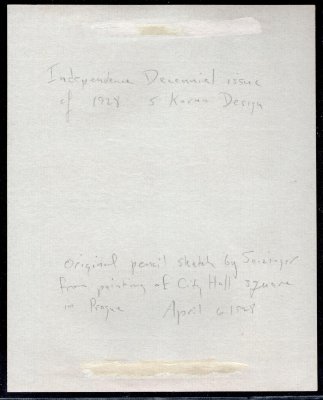 Independence Decennial issue
of 1928 5 Koruna Design
Original pencil sketch by
from painting of City Hall square
in Prague April 6 1928